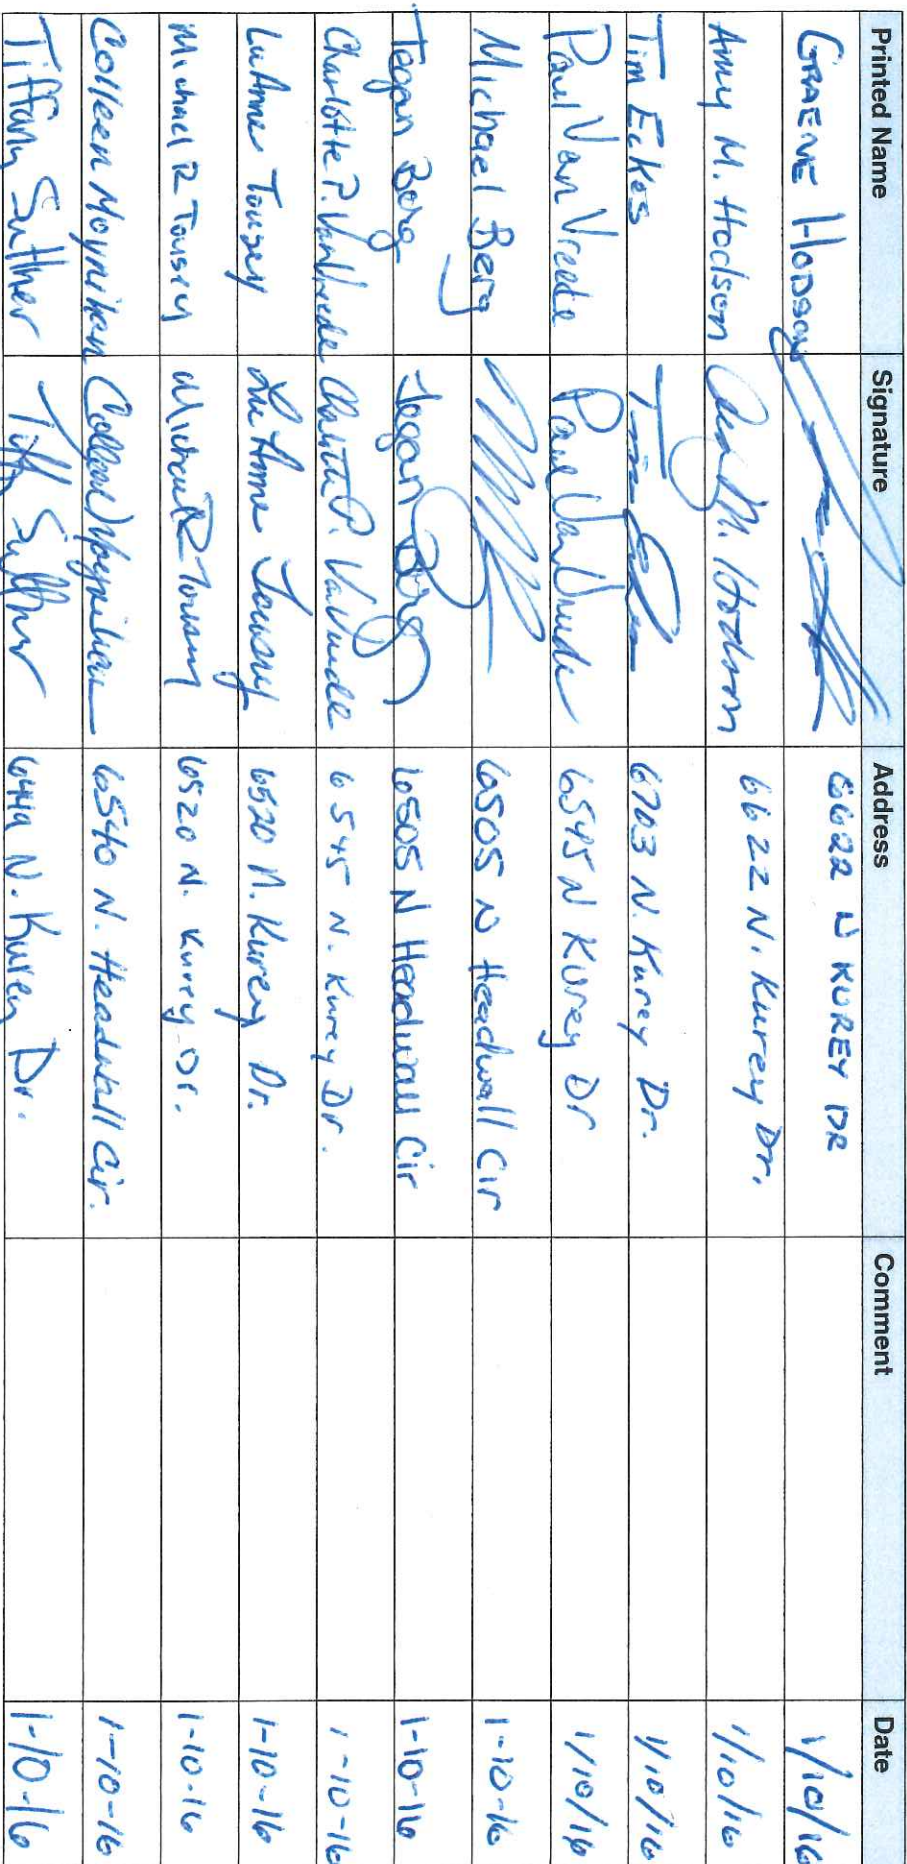 Printed Name Signature Address Comment Date
GRAEME HODSON 6622 N KUREY DR 1/10/16
Amy M. Hodson Amy M. Hodson 6622 N. Kurey Dr. 1/10/16
Tim Eckes 6703 N. Kurey Dr. 1/10/16
Paul Van Vreede Paul Van Vreede 6545 N Kurey Dr 1/10/16
Michael Berg 6505 N Headwall Cir 1-10-16
Tegan Berg Tegan Berg 6505 N Headwall Cir 1-10-16
Charlotte P. VanVreede Charlotte P. VanVreede 6545 N. Kurey Dr. 1-10-16
LuAnne Tousey LuAnne Tousey 6520 N. Kurey Dr. 1-10-16
Michael R Tousey Michael R Tousey 6520 N. Kurey Dr. 1-10-16
Colleen Moynihan Colleen Moynihan 6540 N. Headwall Cir. 1-10-16
Tiffany Suttner Tiff Suttner N. Kurey Dr. 1-10-16